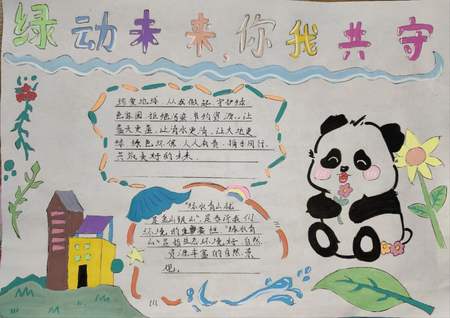 绿动未来,你我共守
珍爱地球,从我做起,守护绿
色家园拒绝污染,节约资源,让
蓝天更蓝,让清水更清,让大地更
绿,绿色环保,人人有责,携手同行,
共筑美好的未来.
"绿水青山就
是金山银山"是
环境的 "绿水青
山"是指生态环境好,自然
资源丰富的自然景
观.